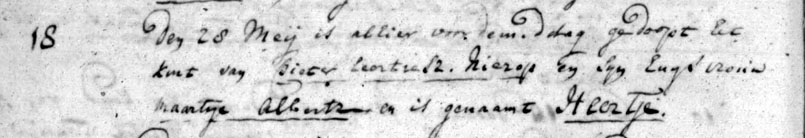 18 Den 28 Meij is allier voor demiddag gedoopt het
kint van Pieter Nierop en syn huysvrouw
maartje Alberts en is genaamt Heertje.